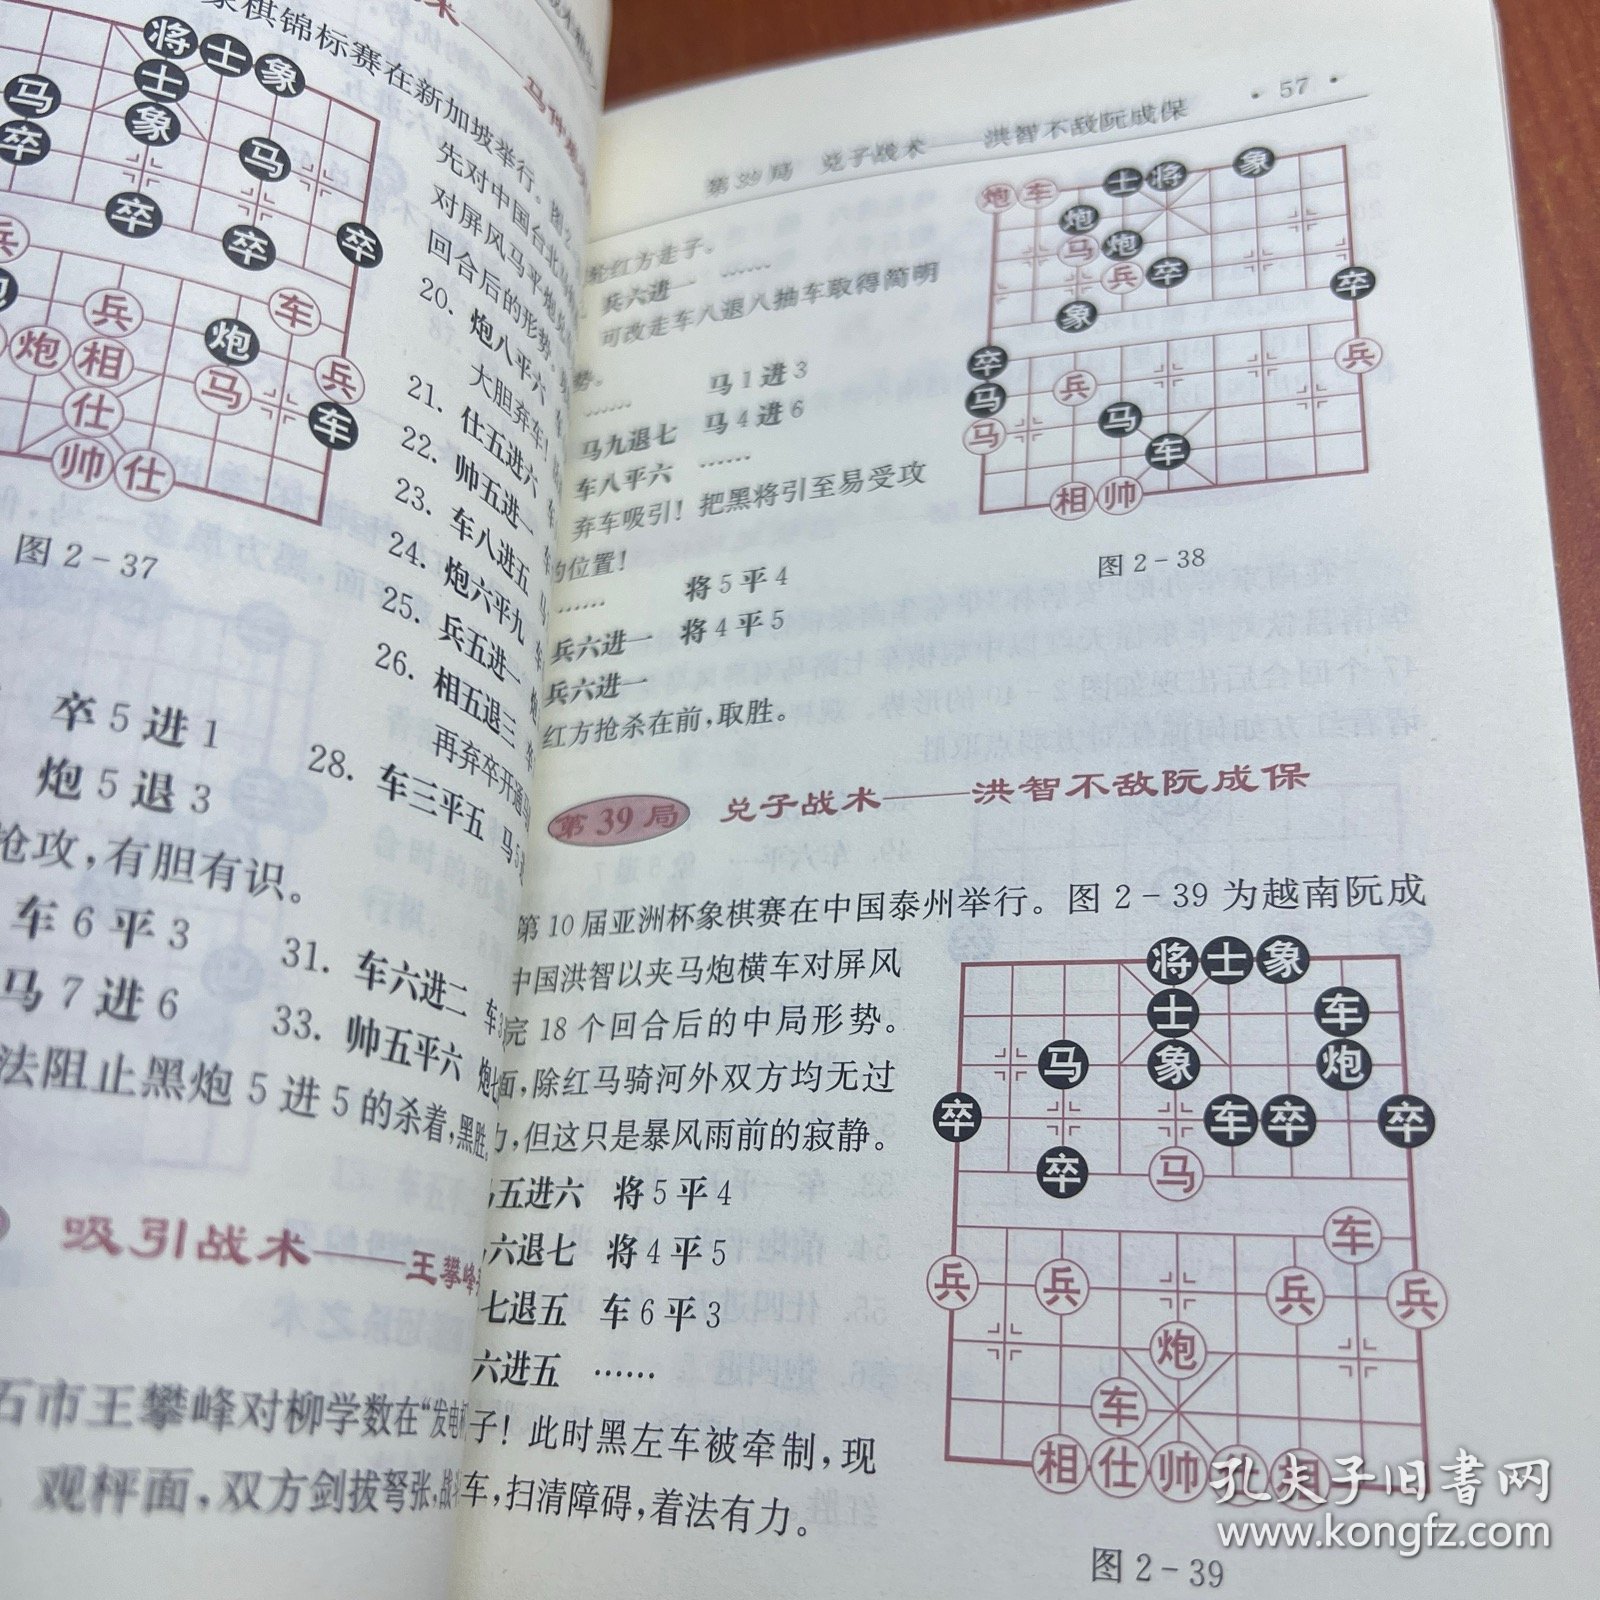 象棋锦标赛在新加坡举行。图2
先对中国台北
对屏风马平炮兑
回合后的形势。
20. 炮八平六 车
大胆弃车!
21. 仕五进六 车
22. 帅五进一 车
23. 车八进五 马
24. 炮六平九 车
25. 兵五进一 炮
26. 相五退三 车
再弃卒开通
28. 车三平五 马5
31. 车六进二 车3
33. 帅五平六 炮七
将 士 象
士
马 象
卒 马
卒 卒 卒
兵
兵 车
炮 相 炮
马 兵
仕 车
帅 仕
图2-37
卒5进1
炮5退3
抢攻,有胆有识。
车6平3
马7进6
法阻止黑炮5进5的杀着,黑胜。
吸引战术——王攀峰
石市王攀峰对柳学数在“发电
观枰面,双方剑拔弩张,战
第39局 兑子战术——洪智不敌阮成保 ·57·
轮红方走子。
兵六进一 ……
可改走车八退八抽车取得简明
势。
…… 马1进3
马九退七 马4进6
车八平六 ……
弃车吸引!把黑将引至易受攻
的位置!
…… 将5平4
兵六进一 将4平5
兵六进一
红方抢杀在前,取胜。
炮 车 士 将 象
炮
马 炮
兵 卒 卒
象
卒 兵
马 兵
马 马
车
相 帅
图2-38
第39局 兑子战术——洪智不敌阮成保
第10届亚洲杯象棋赛在中国泰州举行。图2-39为越南阮成
中国洪智以夹马炮横车对屏风
完18个回合后的中局形势。
面,除红马骑河外双方均无过
力,但这只是暴风雨前的寂静。
马五进六 将5平4
六退七 将4平5
七退五 车6平3
六进五 ……
子!此时黑左车被牵制,现
车,扫清障碍,着法有力。
将 士 象
士 车
马 象 炮
卒 车 卒 卒
卒 马
车
兵 兵 兵 兵
炮
车
相 仕 帅 仕 相
图2-39
孔夫子旧书网
www.kongfz.com